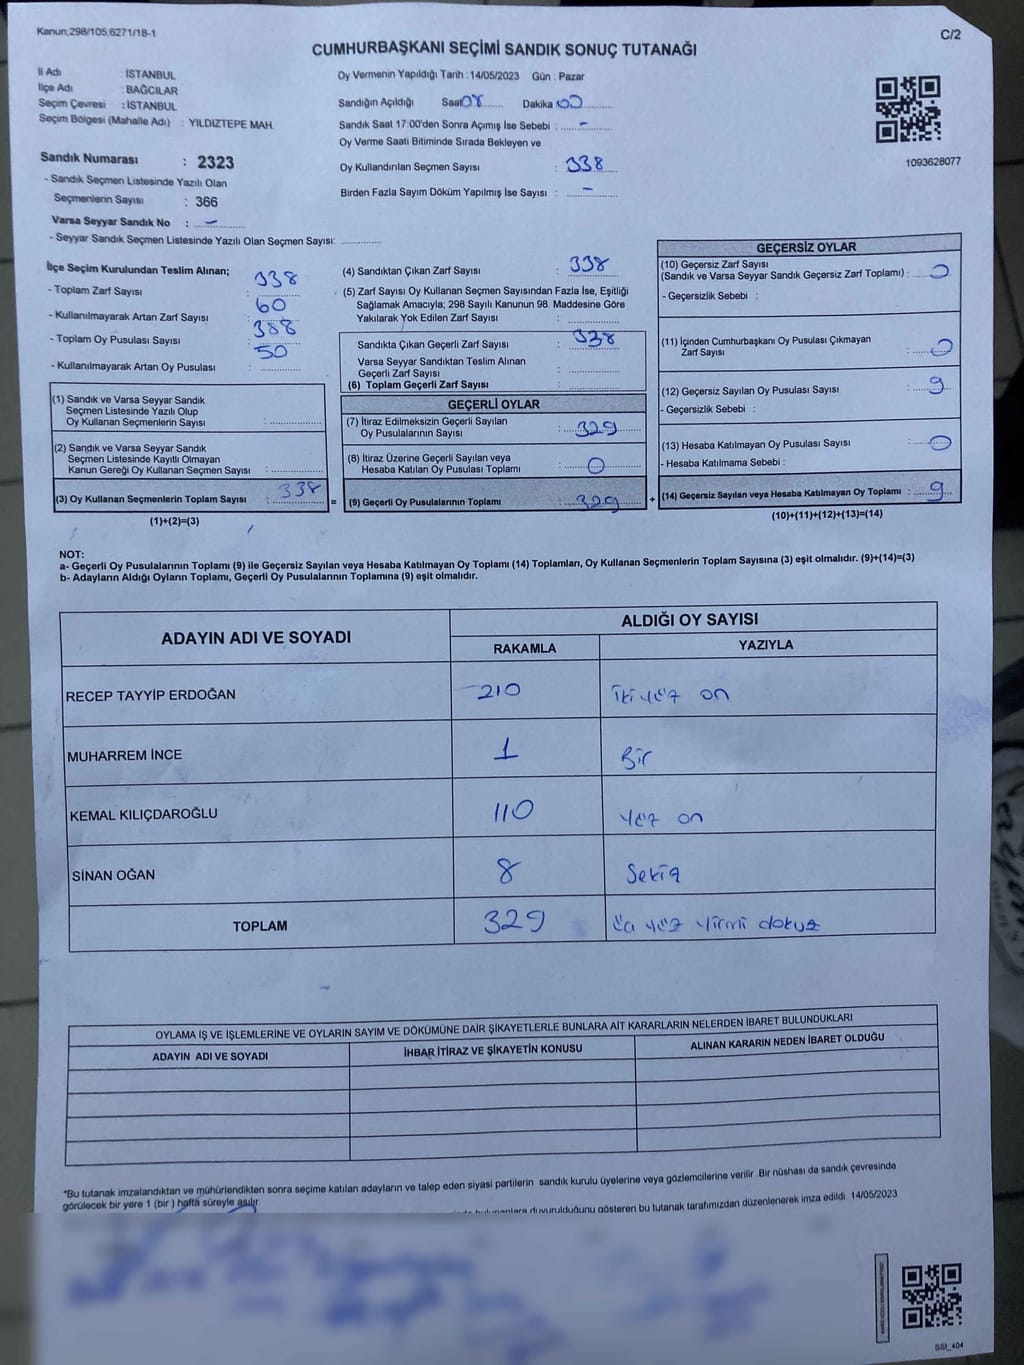 Kanun;298/105;6271/18-1
C/2
CUMHURBAŞKANI SEÇİMİ SANDIK SONUÇ TUTANAĞI
İl Adı : İSTANBUL
İlçe Adı : BAĞCILAR
Seçim Çevresi : İSTANBUL
Seçim Bölgesi (Mahalle Adı) : YILDIZTEPE MAH.
Oy Vermenin Yapıldığı Tarih : 14/05/2023 Gün : Pazar
Sandığın Açıldığı Saat 08 Dakika 00
Sandık Saat 17:00'den Sonra Açımış İse Sebebi : -
Oy Verme Saati Bitiminde Sırada Bekleyen ve
Oy Kullandırılan Seçmen Sayısı : 338
Birden Fazla Sayım Döküm Yapılmış İse Sayısı : -
1093628077
Sandık Numarası : 2323
- Sandık Seçmen Listesinde Yazılı Olan
Seçmenlerin Sayısı : 366
Varsa Seyyar Sandık No : -
- Seyyar Sandık Seçmen Listesinde Yazılı Olan Seçmen Sayısı: ............
İlçe Seçim Kurulundan Teslim Alınan; 338
- Toplam Zarf Sayısı :
- Kullanılmayarak Artan Zarf Sayısı : 60
- Toplam Oy Pusulası Sayısı : 388
- Kullanılmayarak Artan Oy Pusulası : 50
(1) Sandık ve Varsa Seyyar Sandık
Seçmen Listesinde Yazılı Olup
Oy Kullanan Seçmenlerin Sayısı : ............
(2) Sandık ve Varsa Seyyar Sandık
Seçmen Listesinde Kayıtlı Olmayan
Kanun Gereği Oy Kullanan Seçmen Sayısı : ............
(3) Oy Kullanan Seçmenlerin Toplam Sayısı : 338
(1)+(2)=(3)
(4) Sandıktan Çıkan Zarf Sayısı : 338
(5) Zarf Sayısı Oy Kullanan Seçmen Sayısından Fazla İse, Eşitliği
Sağlamak Amacıyla; 298 Sayılı Kanunun 98. Maddesine Göre
Yakılarak Yok Edilen Zarf Sayısı : ............
Sandıkta Çıkan Geçerli Zarf Sayısı : 338
Varsa Seyyar Sandıktan Teslim Alınan
Geçerli Zarf Sayısı : ............
(6) Toplam Geçerli Zarf Sayısı : ............
GEÇERLİ OYLAR
(7) İtiraz Edilmeksizin Geçerli Sayılan
Oy Pusulalarının Sayısı : 329
(8) İtiraz Üzerine Geçerli Sayılan veya
Hesaba Katılan Oy Pusulası Toplamı : 0
= (9) Geçerli Oy Pusulalarının Toplamı : 329 +
GEÇERSİZ OYLAR
(10) Geçersiz Zarf Sayısı
(Sandık ve Varsa Seyyar Sandık Geçersiz Zarf Toplamı) : 0
- Geçersizlik Sebebi :
(11) İçinden Cumhurbaşkanı Oy Pusulası Çıkmayan
Zarf Sayısı : 0
(12) Geçersiz Sayılan Oy Pusulası Sayısı : 9
- Geçersizlik Sebebi :
(13) Hesaba Katılmayan Oy Pusulası Sayısı : 0
- Hesaba Katılmama Sebebi :
(14) Geçersiz Sayılan veya Hesaba Katılmayan Oy Toplamı : 9
(10)+(11)+(12)+(13)=(14)
NOT:
a- Geçerli Oy Pusulalarının Toplamı (9) ile Geçersiz Sayılan veya Hesaba Katılmayan Oy Toplamı (14) Toplamları, Oy Kullanan Seçmenlerin Toplam Sayısına (3) eşit olmalıdır. (9)+(14)=(3)
b- Adayların Aldığı Oyların Toplamı, Geçerli Oy Pusulalarının Toplamına (9) eşit olmalıdır.
ADAYIN ADI VE SOYADI
ALDIĞI OY SAYISI
RAKAMLA YAZIYLA
RECEP TAYYİP ERDOĞAN 210 İki yüz on
MUHARREM İNCE 1 Bir
KEMAL KILIÇDAROĞLU 110 Yüz on
SİNAN OĞAN 8 Sekiz
TOPLAM 329 Üç yüz yirmi dokuz
OYLAMA İŞ VE İŞLEMLERİNE VE OYLARIN SAYIM VE DÖKÜMÜNE DAİR ŞİKAYETLERLE BUNLARA AİT KARARLARIN NELERDEN İBARET BULUNDUKLARI
ADAYIN ADI VE SOYADI İHBAR İTİRAZ VE ŞİKAYETİN KONUSU ALINAN KARARIN NEDEN İBARET OLDUĞU
*Bu tutanak imzalandıktan ve mühürlendikten sonra seçime katılan adayların ve talep eden siyasi partilerin sandık kurulu üyelerine veya gözlemcilerine verilir .Bir nüshası da sandık çevresinde
görülecek bir yere 1 (bir ) hafta süreyle asılır.
bulunanlara duyurulduğunu gösteren bu tutanak tarafımızdan düzenlenerek imza edildi. 14/05/2023
SSI_404